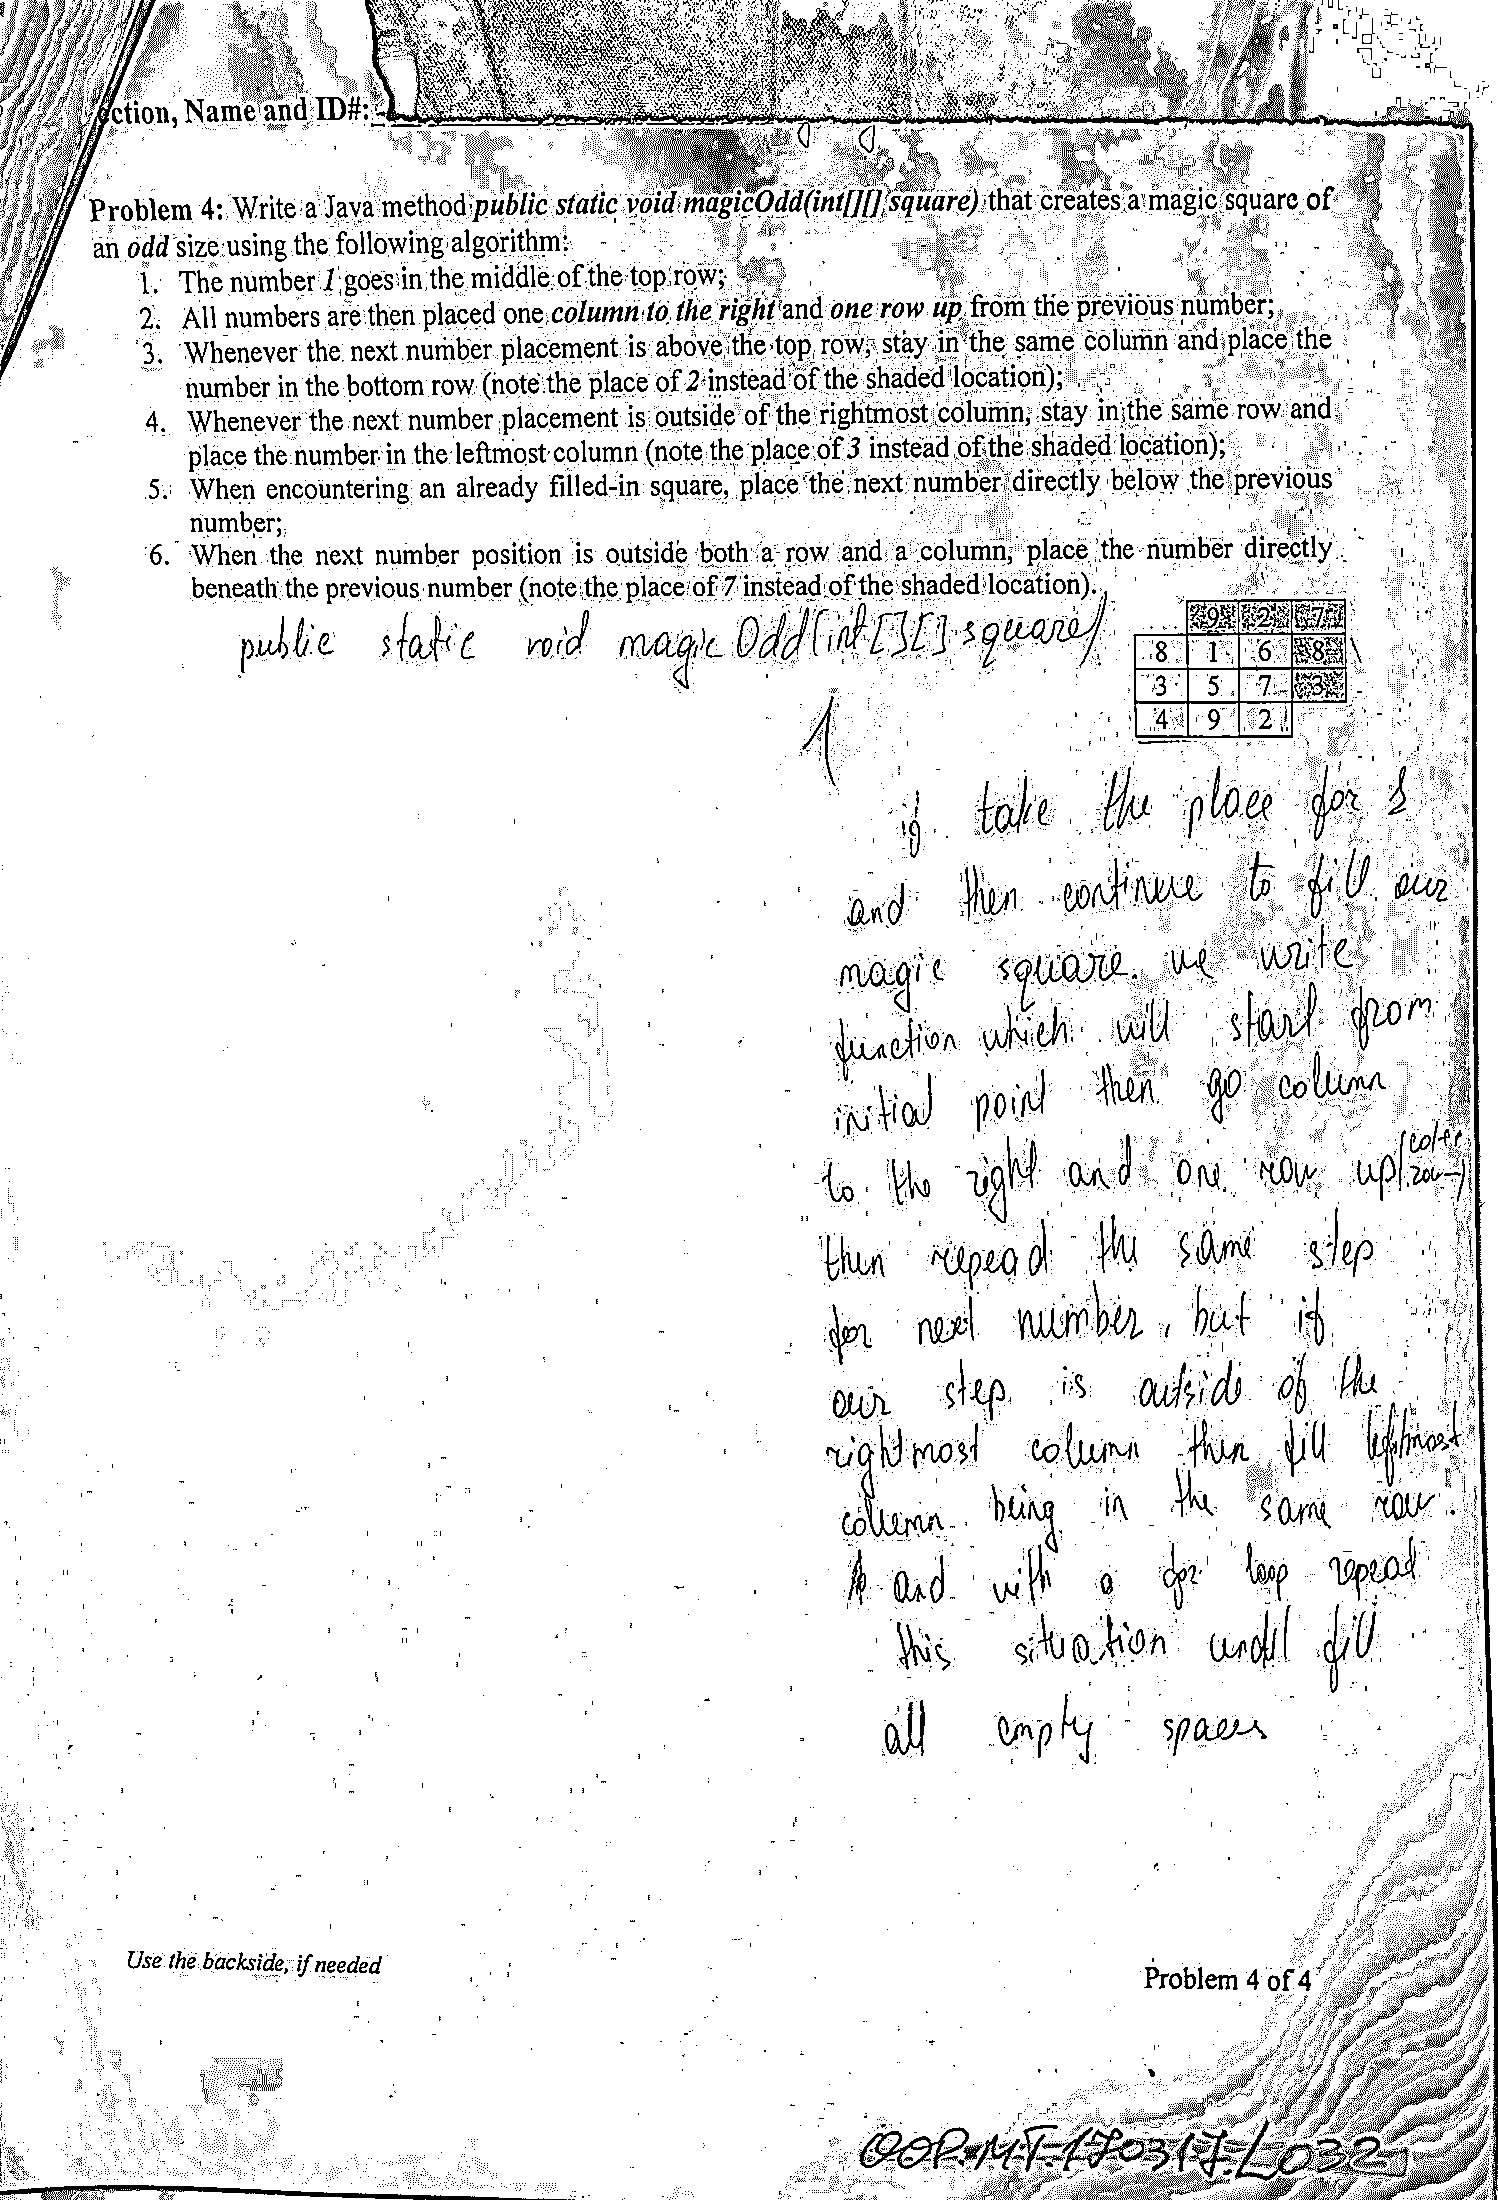 ction, Name and ID#:
Problem 4: Write a Java method public static void magicOdd(int[][] square) that creates a magic square of
an odd size using the following algorithm:
1. The number 1 goes in the middle of the top row;
2. All numbers are then placed one column to the right and one row up from the previous number;
3. Whenever the next number placement is above the top row, stay in the same column and place the
number in the bottom row (note the place of 2 instead of the shaded location);
4. Whenever the next number placement is outside of the rightmost column, stay in the same row and
place the number in the leftmost column (note the place of 3 instead of the shaded location);
5. When encountering an already filled-in square, place the next number directly below the previous
number;
6. When the next number position is outside both a row and a column, place the number directly
beneath the previous number (note the place of 7 instead of the shaded location).
public static void magicOdd(int[][] square)
9 2 7
8 1 6 8
3 5 7 3
4 9 2
if take the place for 1
and then continue to fill our
magic square. we write
function which will start from
initial point then go column
to the right and one row up (col++
row--)
then repead the same step
for next number, but if
our step is outside of the
rightmost column then fill leftmost
column being in the same row.
and with a for loop repead
this situation until fill
all empty spaces
Use the backside, if needed
Problem 4 of 4
OOP.MT.170317.L032